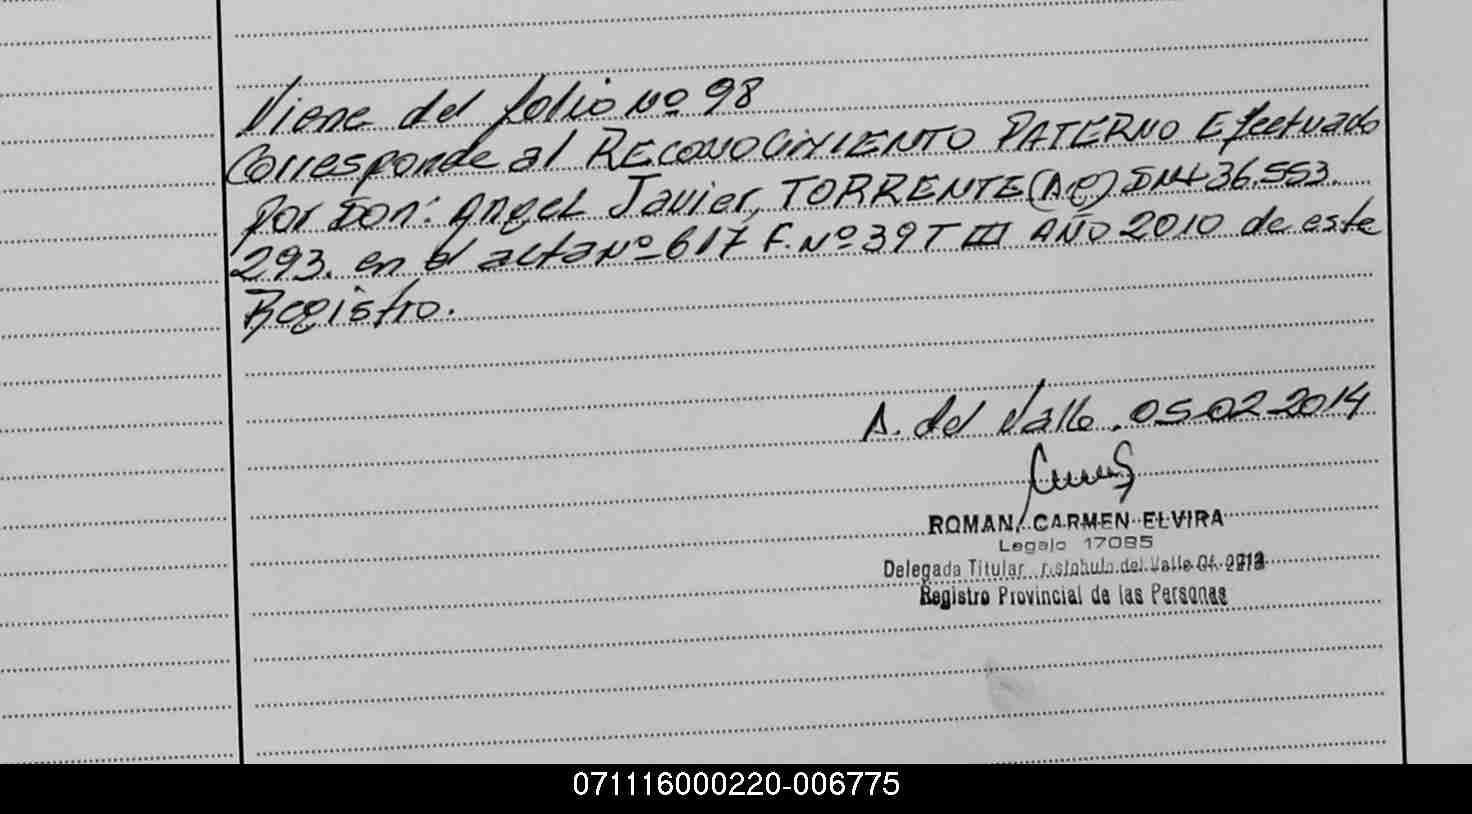 Viene del folio Nº 98
Corresponde al RECONOCIMIENTO PATERNO Efectuado
por Don: Angel Javier, TORRENTE (A.C) DNI 36.553.
293. en el acta Nº 617 F. Nº 39 T III AÑO 2010 de este
Registro.
A. del Valle. 05-02-2014
ROMAN, CARMEN ELVIRA
Legajo 17085
Delegada Titular Aristobulo del Valle Of.
Registro Provincial de las Personas
071116000220-006775